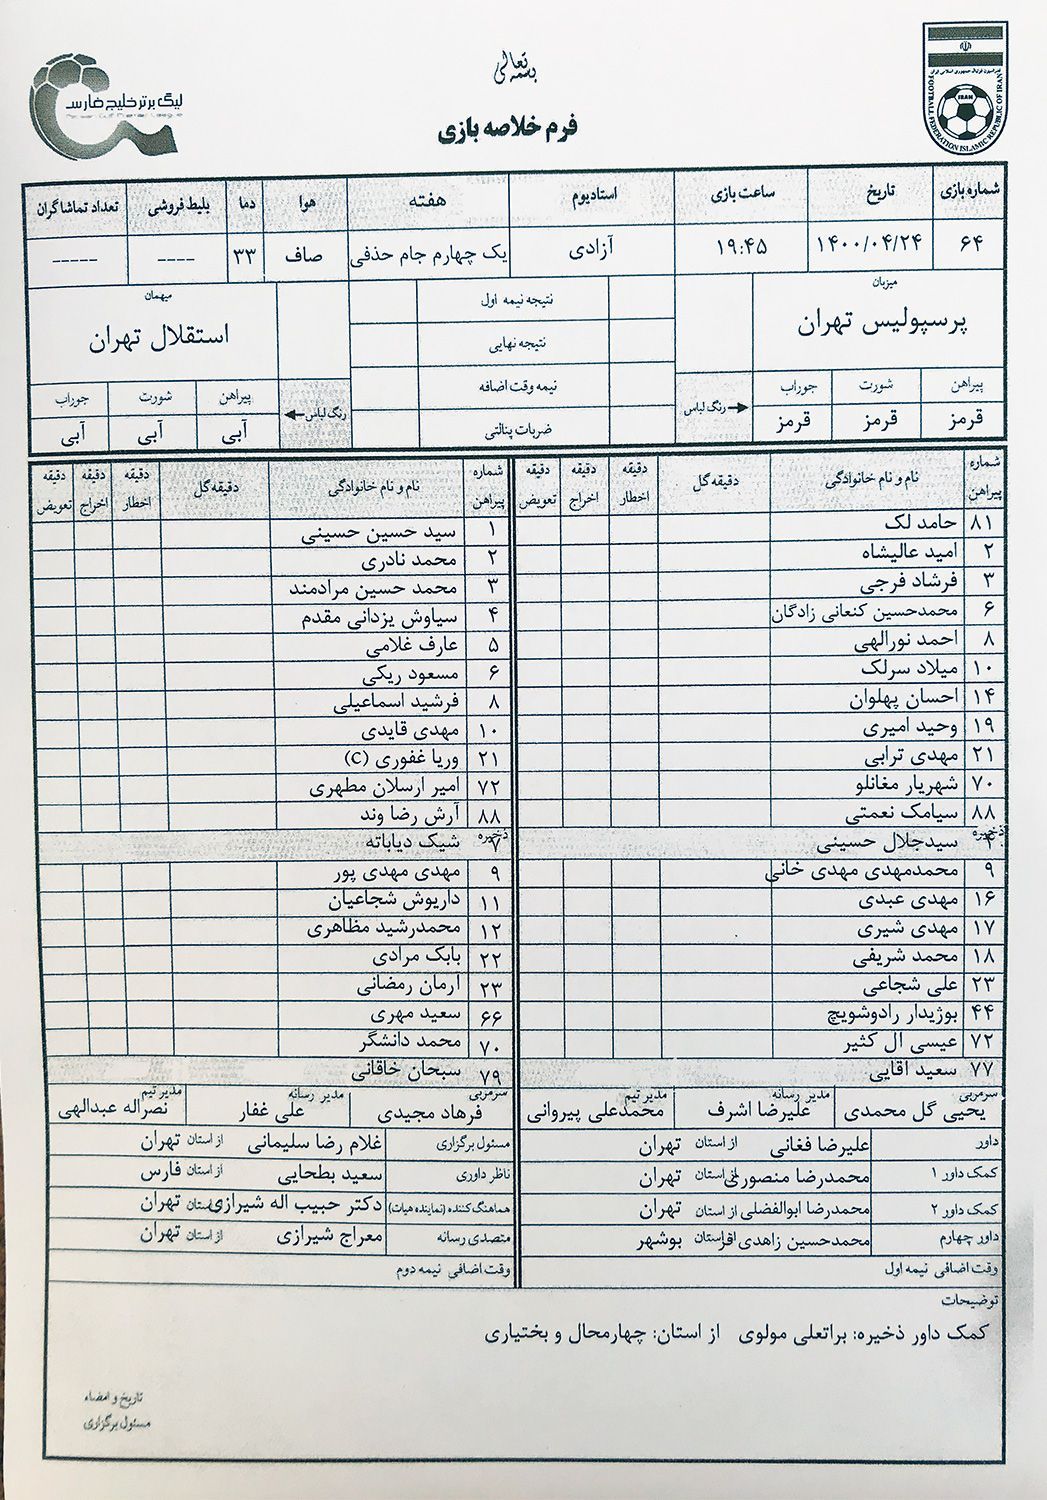 بسمه تعالی
لیگ برتر خلیج فارس
Persian Gulf Premier League
فدراسیون فوتبال جمهوری اسلامی ایران
IRAN
FOOTBALL FEDERATION ISLAMIC REPUBLIC OF IRAN
فرم خلاصه بازی
شماره بازی تاریخ ساعت بازی استادیوم هفته هوا دما بلیط فروشی تعداد تماشاگران
۶۴ ۱۴۰۰/۰۴/۲۴ ۱۹:۴۵ آزادی یک چهارم جام حذفی صاف ۳۳ ---- -----
میزبان
پرسپولیس تهران
پیراهن شورت جوراب
قرمز قرمز قرمز
رنگ لباس
نتیجه نیمه اول
نتیجه نهایی
نیمه وقت اضافه
ضربات پنالتی
میهمان
استقلال تهران
رنگ لباس
پیراهن شورت جوراب
آبی آبی آبی
شماره پیراهن نام و نام خانوادگی دقیقه گل دقیقه اخطار دقیقه اخراج دقیقه تعویض
۸۱ حامد لک
۲ امید عالیشاه
۳ فرشاد فرجی
۶ محمدحسین کنعانی زادگان
۸ احمد نورالهی
۱۰ میلاد سرلک
۱۴ احسان پهلوان
۱۹ وحید امیری
۲۱ مهدی ترابی
۷۰ شهریار مغانلو
۸۸ سیامک نعمتی
ذخیره
۴ سیدجلال حسینی
۹ محمدمهدی مهدی خانی
۱۶ مهدی عبدی
۱۷ مهدی شیری
۱۸ محمد شریفی
۲۳ علی شجاعی
۴۴ بوژیدار رادوشویچ
۷۲ عیسی ال کثیر
۷۷ سعید اقایی
سرمربی یحیی گل محمدی مدیر رسانه علیرضا اشرف مدیر تیم محمدعلی پیروانی
شماره پیراهن نام و نام خانوادگی دقیقه گل دقیقه اخطار دقیقه اخراج دقیقه تعویض
۱ سید حسین حسینی
۲ محمد نادری
۳ محمد حسین مرادمند
۴ سیاوش یزدانی مقدم
۵ عارف غلامی
۶ مسعود ریکی
۸ فرشید اسماعیلی
۱۰ مهدی قایدی
۲۱ وریا غفوری (C)
۷۲ امیر ارسلان مطهری
۸۸ آرش رضا وند
ذخیره
۷ شیک دیاباته
۹ مهدی مهدی پور
۱۱ داریوش شجاعیان
۱۲ محمدرشید مظاهری
۲۲ بابک مرادی
۲۳ آرمان رمضانی
۶۶ سعید مهری
۷۰ محمد دانشگر
۷۹ سبحان خاقانی
سرمربی فرهاد مجیدی مدیر رسانه علی غفار مدیر تیم نصراله عبدالهی
داور علیرضا فغانی از استان تهران
کمک داور ۱ محمدرضا منصوری از استان تهران
کمک داور ۲ محمدرضا ابوالفضلی از استان تهران
داور چهارم محمدحسین زاهدی فر از استان بوشهر
وقت اضافی نیمه اول
مسئول برگزاری غلام رضا سلیمانی از استان تهران
ناظر داوری سعید بطحایی از استان فارس
هماهنگ کننده (نماینده هیات) دکتر حبیب اله شیرازی از استان تهران
متصدی رسانه معراج شیرازی از استان تهران
وقت اضافی نیمه دوم
توضیحات
کمک داور ذخیره: براتعلی مولوی از استان: چهارمحال و بختیاری
تاریخ و امضاء
مسئول برگزاری